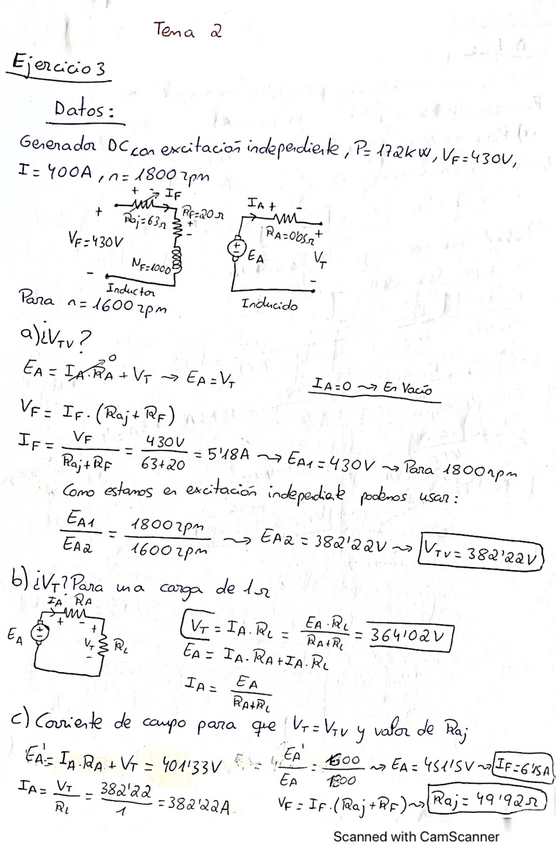 Tema 2
Ejercicio 3
Datos:
Generador DC con excitación independiente, P=172kW, VF=430V,
I=400A, n=1800rpm
+ - IF
Raj=63Ω
RF=20Ω
+
-
+
VF=430V
NF=1000
-
Inductor
IA + -
RA=0'05Ω
+
EA
VT
-
Inducido
Para n=1600rpm
a) ¿VTV?
EA = IA·RA + VT → EA=VT
0
IA=0 → En Vacío
VF = IF·(Raj+RF)
IF = VF/(Raj+RF) = 430V/(63+20) = 5'18A → EA1=430V → Para 1800rpm
Como estamos en excitación indepediente podemos usar:
EA1/EA2 = 1800rpm/1600rpm → EA2=382'22V → VTV=382'22V
b) ¿VT? Para una carga de 1Ω
IA RA
+ -
EA
+
VT
-
RL
VT = IA·RL = EA·RL/(RA+RL) = 364'02V
EA = IA·RA+IA·RL
IA = EA/(RA+RL)
c) Corriente de campo para que VT=VTV y valor de Raj
EA' = IA·RA + VT = 401'33V
EA'/EA = 1600/1800 → EA=451'5V → IF=6'15A
IA = VT/RL = 382'22/1 = 382'22A
VF=IF·(Raj+RF) → Raj=49'92Ω
Scanned with CamScanner